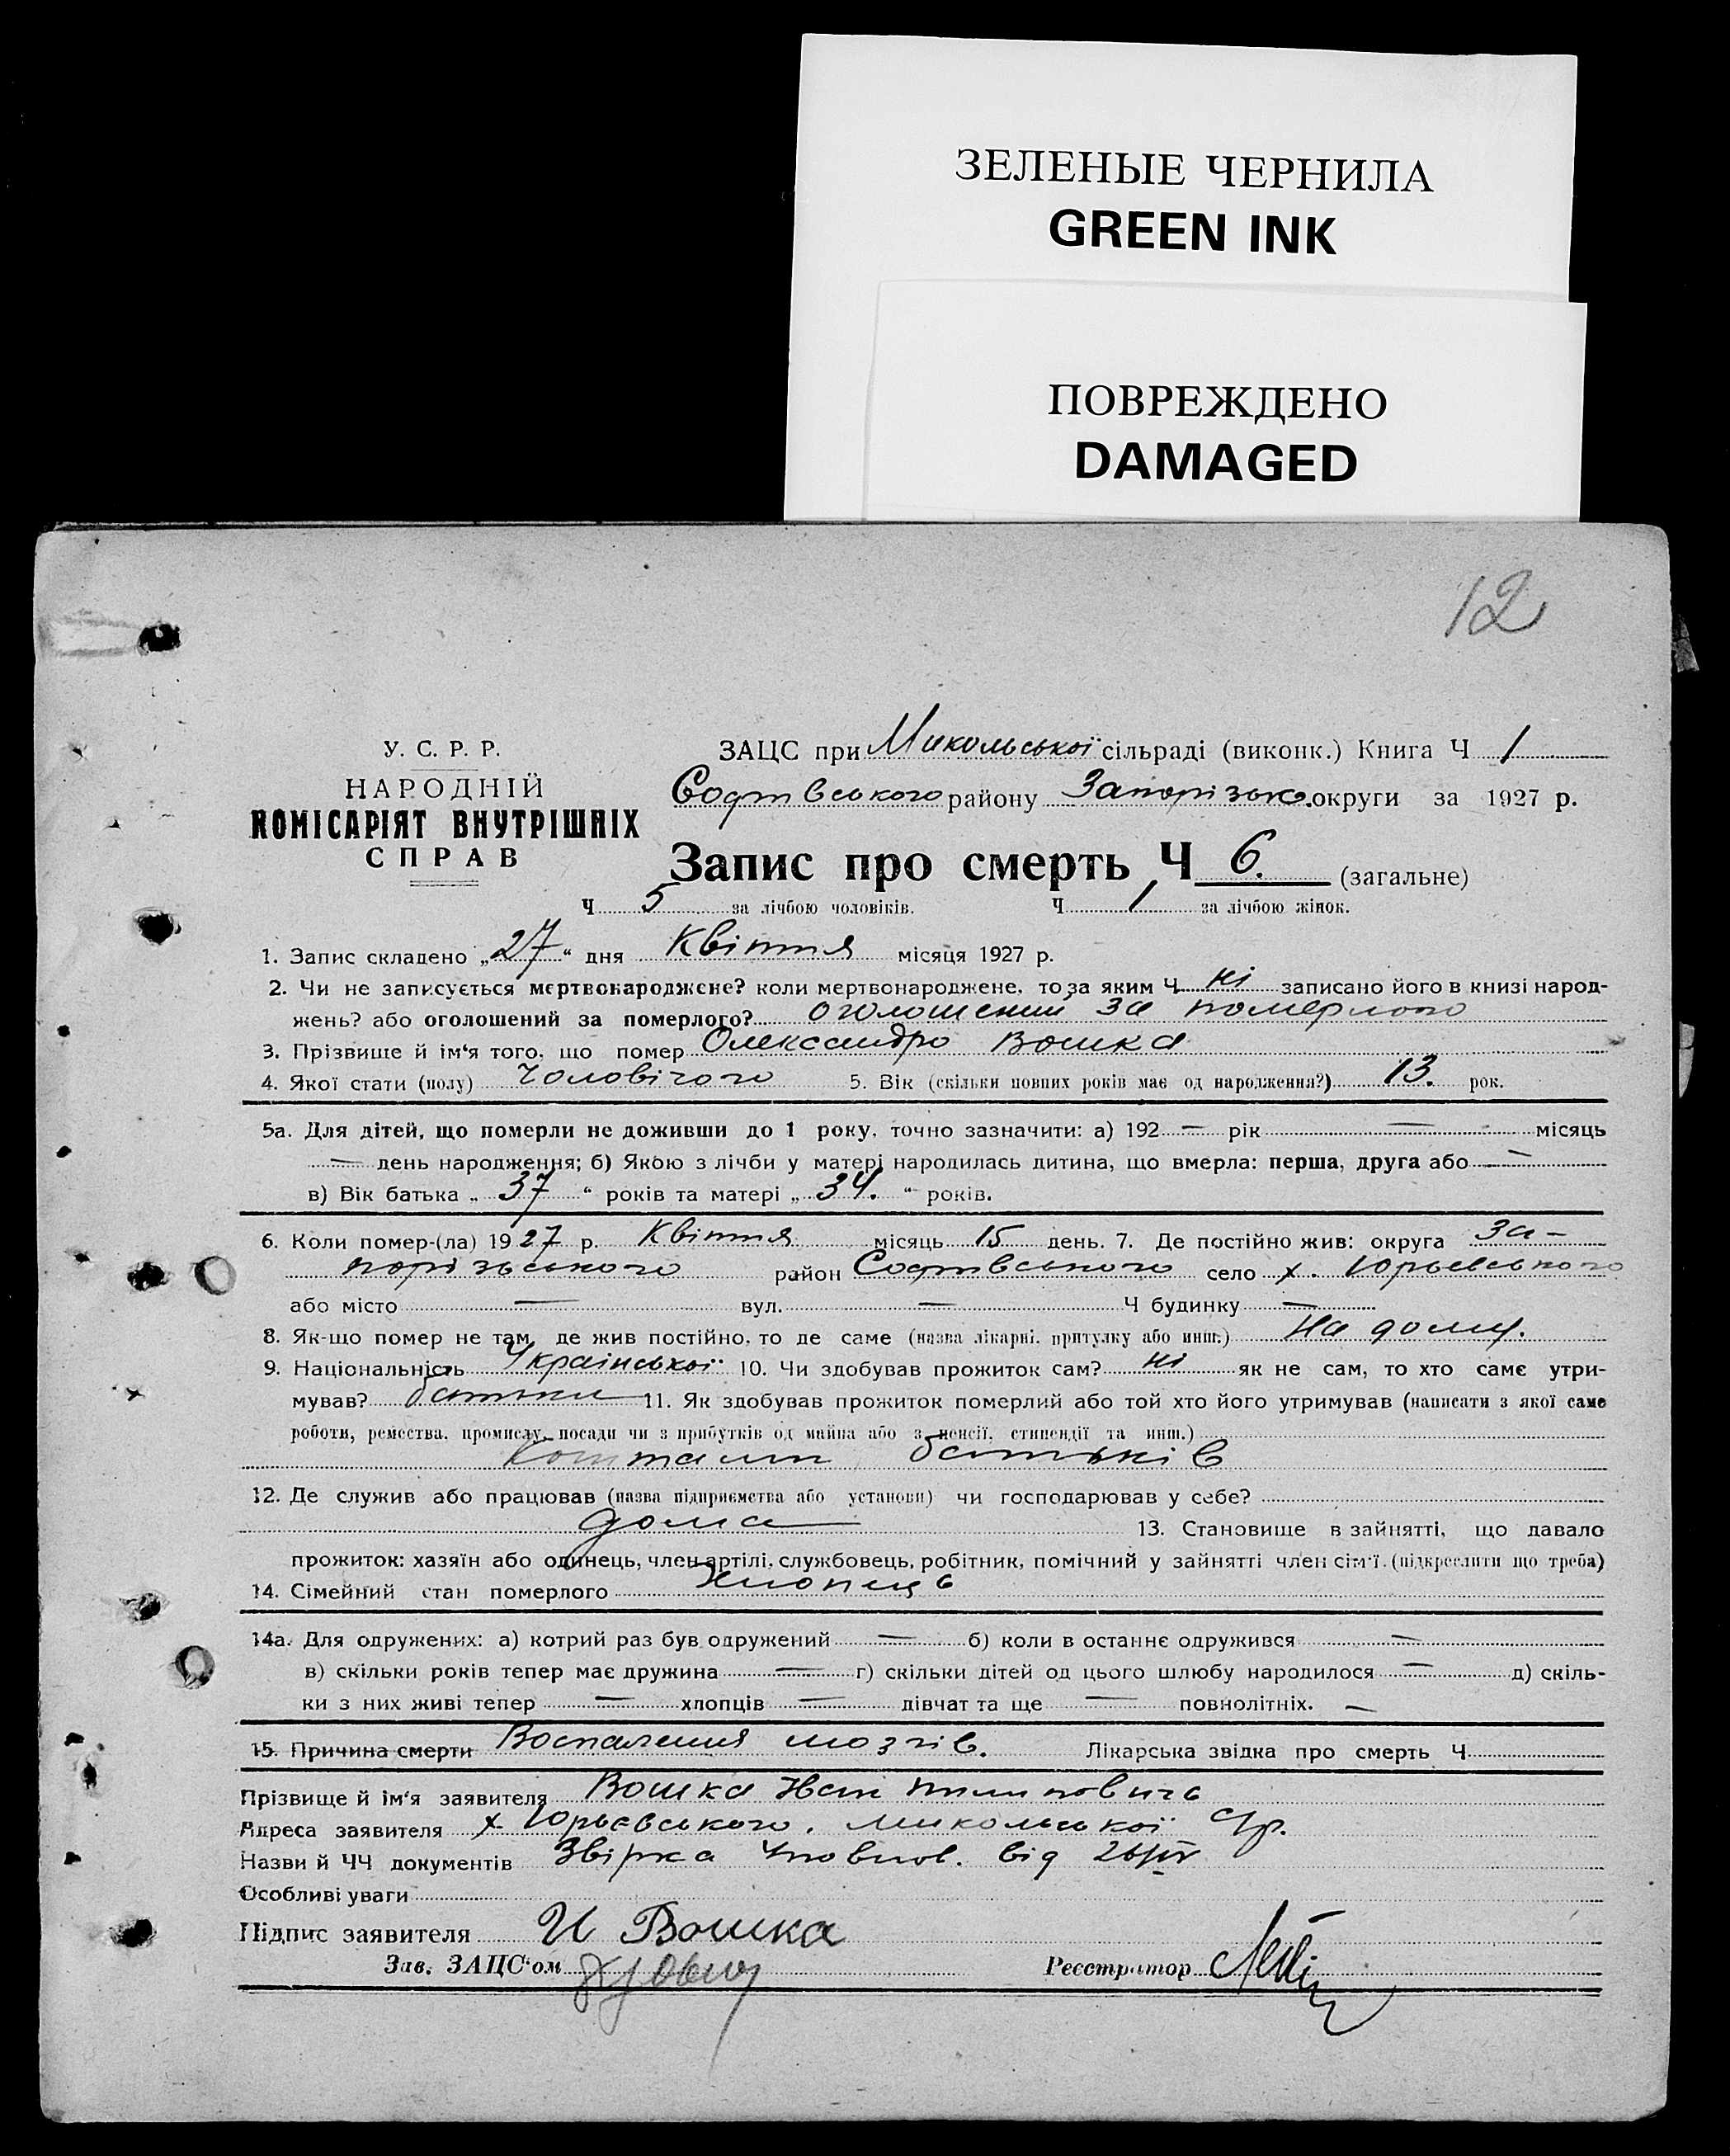 ЗЕЛЕНЫЕ ЧЕРНИЛА
GREEN INK
ПОВРЕЖДЕНО
DAMAGED
12
У. С. Р. Р.
НАРОДНІЙ
КОМІСАРІЯТ ВНУТРІШНІХ
СПРАВ
ЗАЦС при Микольської сільраді (виконк.) Книга Ч 1
Софтвського району Запорізьк. округи за 1927 р.
Запис про смерть Ч 6. (загальне)
Ч 5 за лічбою чоловіків. Ч 1 за лічбою жінок.
1. Запис складено „27“ дня Квіття місяця 1927 р.
2. Чи не записується мертвонароджене? коли мертвонароджене, то за яким Ч ні записано його в книзі народ-
жень? або оголошений за померлого? оголошений за померлого
3. Прізвище й ім‘я того, що помер Олександро Вошка
4. Якої стати (полу) Чоловічого 5. Вік (скільки повних років має од народження?) 13. рок.
5а. Для дітей, що померли не доживши до 1 року, точно зазначити: а) 192 — рік — місяць
— день народження; б) Якою з лічби у матері народилась дитина, що вмерла: перша, друга або —
в) Вік батька „ 37 “ років та матері „ 34. “ років.
6. Коли помер-(ла) 1927 р. Квіття місяць 15 день. 7. Де постійно жив: округа За-
порізьського район Софтвського село х. Юрьевського
або місто — вул. — Ч будинку —
8. Як-що помер не там, де жив постійно, то де саме (назва лікарні, притулку або инш.) На дому.
9. Національність Української 10. Чи здобував прожиток сам? ні як не сам, то хто саме утри-
мував? батьки 11. Як здобував прожиток померлий або той хто його утримував (написати з якої саме
роботи, ремества, промислу, посади чи з прибутків од майна або з пенсії, стипендії та инш.)
Коштами батьків
12. Де служив або працював (назва підприємства або установи) чи господарював у себе?
дома 13. Становище в зайнятті, що давало
прожиток: хазяїн або одинець, член артілі, службовець, робітник, помічний у зайнятті член сім‘ї. (підкреслити що треба)
14. Сімейний стан померлого Хлопець
14а. Для одружених: а) котрий раз був одружений — б) коли в останнє одружився —
в) скільки років тепер має дружина — г) скільки дітей од цього шлюбу народилося — д) скіль-
ки з них живі тепер — хлопців — дівчат та ще — повнолітніх. —
15. Причина смерти Воспаления мозгів. Лікарська звідка про смерть Ч
Прізвище й ім‘я заявителя Вошка Іван Пилиповичь
Адреса заявителя х. Юрьевського, Микольської С/р.
Назви й ЧЧ документів Звірка від 26/IV
Особливі уваги
Підпис заявителя И Вошка
Зав. ЗАЦС‘ом Реєстратор